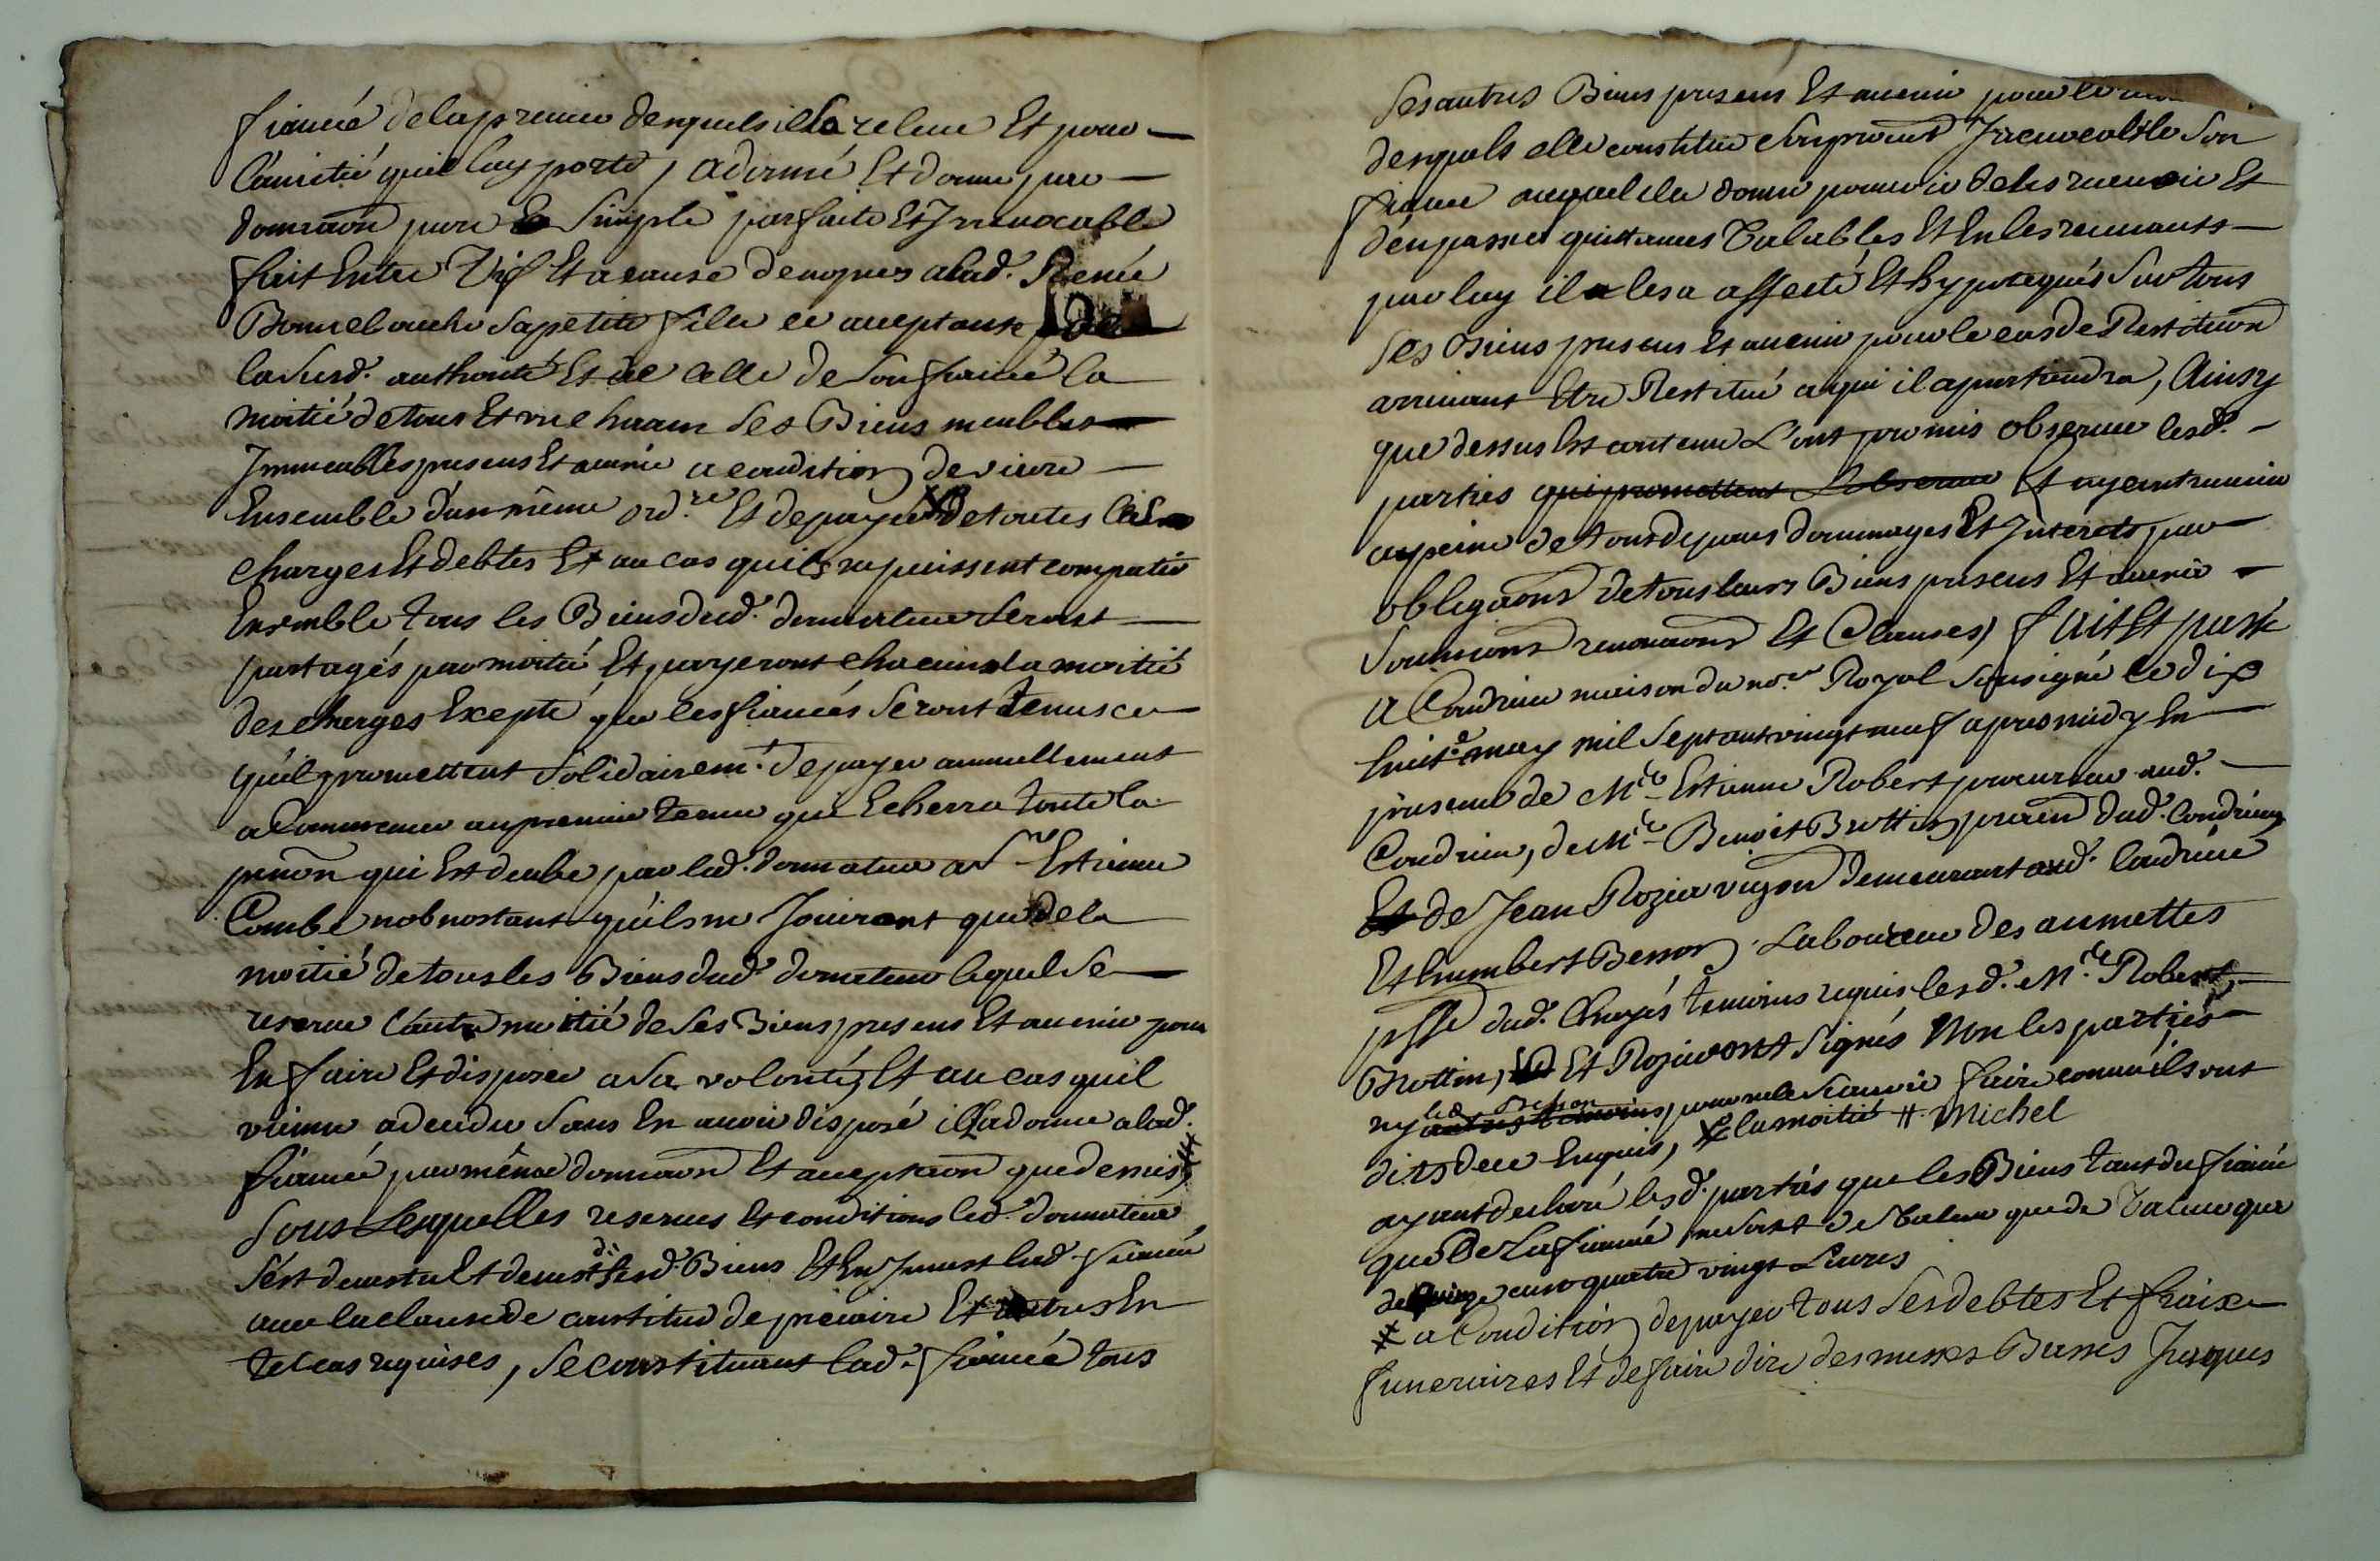 fiancée de la preuve desquels il la releve Et pour
L'amitié qu'il luy porte, a donné Et donne par
donnaon pure Et Simple parfaite Et Irrevocable
fait Entre Vif Et a cause de nopces a lad. Renée
Bonnebouche sa petite fille ce acceptante de
la Susd. authorité Et de celle de son fiancé la
moitié de tous Et un chacun Ses Biens meubles
Immeubles presens Et avenir a condition de vivre
Ensemble d'un même ord.re Et de payer de toutes les
charges Et debtes Et au cas qu'ils ne puissent compatir
Ensemble tous les Biens dud. donnateur Seront
partagés par moitié Et payeront chacun la moitié
des charges Excepté que les fiancés Seront tenus ce
qu'il promettent Solidairem.t de payer annuellement
a Commencer au premier terme qui Echerra toute la
pention qui Est deube par led. donnateur a Sr Estienne
Combe nobnostant qu'ils ne Jouiront que de la
moitié de tous les Biens dud. donnateur lequel Se
reserve l'autre moitié de Ses Biens presens Et avenir pour
En faire Et disposer a Sa volonté, Et au cas quil
vienne a deceder Sans En avoir disposé il la donne a lad.
fiancée par même donnaon Et acceptaon que dessus
Sous Lesquelles reserves Et conditions led. donnateur
S'est devestu Et devest desd. Biens Et En Invest lad. fiancée
avec la clause de constitut de précaire Et autres En
tel cas requises, Se constituant lad. fiancée tous
Ses autres Biens presens Et avenir pour le
desquels elle constitue Son procur Irrevocable Son
fiancé auquel elle donne pouvoir de les recevoir Et
d'en passer quittances Valables Et En les recevants
par luy il les a affecté Et hypotequés Sur tous
Ses Biens presens Et avenir pour le cas de Restitution
arrivant Etre Restitué a qui il apartiendra, Ainsy
que dessus Est contenu L'ont promis observer lesd.
parties qui promettent L'observer Et ny contrevenir
a peine de tous depens dommages Et Interets par
obligaons de tous leurs Biens presens Et avenir
Soumions renonaons Et Clauses, fait Et passé
a Condrieu maison du no.re Royal Soussigné le dix
huit may mil Sept cent vingt neuf apres midy En
presence de M.re Estienne Robert procureur aud.
Condrieu, de M.re Benoit Brottin praticien dud. Condrieu
Et de Jean Rozier vigon demeurant aud. Condrieu
Et humbert Besson Laboureur des aumettes
psse dud. Chuyés temoins requis lesd. M.re Robert,
Brottin, Et Rozier ont Signés Non les parties
ny autres temoins led Besson pour ne le Scavoir faire comm'ils ont
dits de ce Enquis, la moitié # Michel
ayant declaré lesd. parties que les Biens tant du fiancé
que De La fiancée ne Sont de Valeur que de Valeur que
de quinze cent quatre vingt Livres
a Condition de payer tous Ses debtes Et fraix
funeraires Et de faire dire des messes Basses Jusques